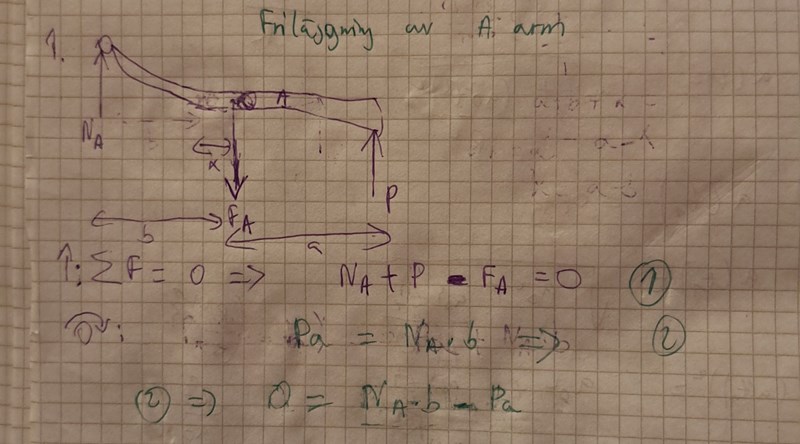 Friläggning av A: arm
1.
A
N_A
x
P
F_A
b
a
↑: ∑F = 0 => N_A + P - F_A = 0 ①
Pa = N_A·b => ②
② => 0 = N_A·b - Pa